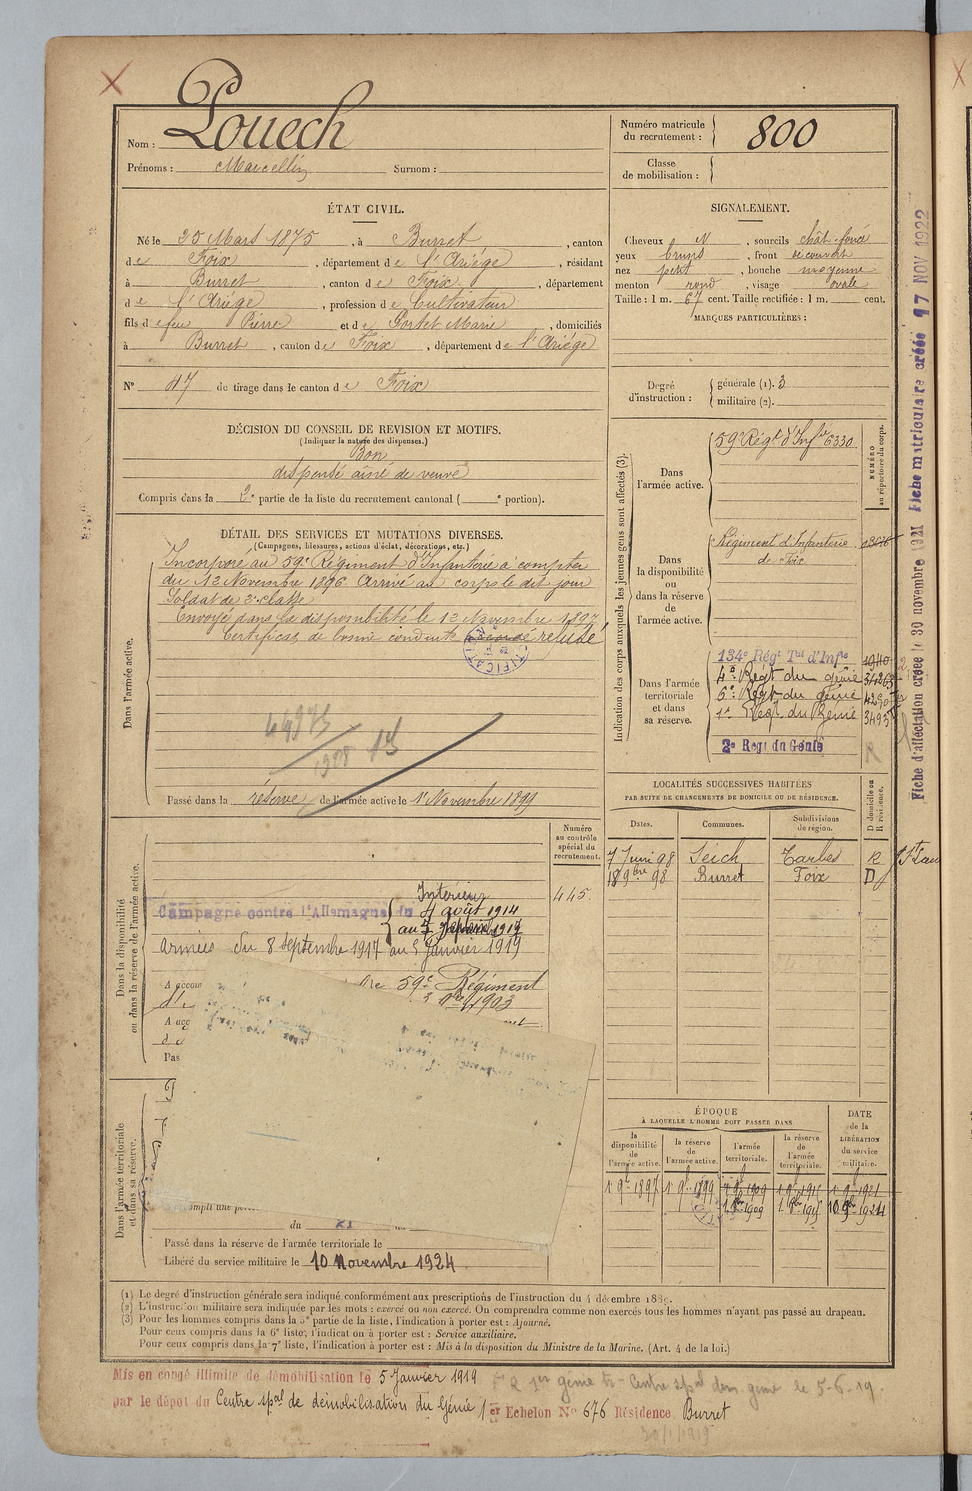 Nom : Pouech
Prénoms : Marcellin Surnom :
Numéro matricule du recrutement : 800
Classe de mobilisation :
ÉTAT CIVIL.
Né le 25 Mars 1875, à Burret, canton
de Foix, département de l'Ariège, résidant
à Burret, canton de Foix, département
de l'Ariège, profession de Cultivateur
fils de feu Pierre et de Gortet Marie, domiciliés
à Burret, canton de Foix, département de l'Ariège
No 47 de tirage dans le canton de Foix
SIGNALEMENT.
Cheveux N, sourcils chât. foncé
yeux bruns, front découvert
nez petit, bouche moyenne
menton rond, visage ovale
Taille : 1 m. 67 cent. Taille rectifiée : 1 m. cent.
MARQUES PARTICULIÈRES :
Degré d'instruction : générale (1). 3
militaire (2).
DÉCISION DU CONSEIL DE REVISION ET MOTIFS.
(Indiquer la nature des dispenses.)
Bon
dispensé aîné de veuve
Compris dans la 2e partie de la liste du recrutement cantonal ( e portion).
DÉTAIL DES SERVICES ET MUTATIONS DIVERSES.
(Campagnes, blessures, actions d'éclat, décorations, etc.)
Dans l'armée active.
Incorporé au 59e Régiment d'Infanterie à compter
du 12 Novembre 1896 Arrivé au corps le dit jour
Soldat de 2e classe
Envoyé dans la disponibilité le 12 Novembre 1897
Certificat de bonne conduite refusé
Passé dans la réserve de l'armée active le 1r Novembre 1899
Indication des corps auxquels les jeunes gens sont affectés (3).
NUMÉRO au répertoire du corps.
Dans l'armée active.
59e Régt d'Infie 6330
Dans la disponibilité ou dans la réserve de l'armée active.
Régiment d'Infanterie
de Foix
Dans l'armée territoriale et dans sa réserve.
134e Régt Tal d'Infie
4e Régt du génie
6e Régt du génie
1r Régt du Génie
2e Régt du Génie
R
LOCALITÉS SUCCESSIVES HABITÉES
PAR SUITE DE CHANGEMENTS DE DOMICILE OU DE RÉSIDENCE.
Dates. Communes. Subdivisions de région. D domicile ou R résidence.
7 Juin 98 Seich Tarbes R
18 9bre 98 Burret Foix D
Numéro au contrôle spécial du recrutement.
445
Dans la disponibilité ou dans la réserve de l'armée active.
Intérieur
Campagne contre l'Allemagne du 4 août 1914
armées du 8 septembre 1917 au 5 Janvier 1919
A accom
59e Régiment
1903
A acc
Pas
Dans l'armée territoriale et dans sa réserve.
ompli une pér
du
Passé dans la réserve de l'armée territoriale le
Libéré du service militaire le 10 Novembre 1924
ÉPOQUE
À LAQUELLE L'HOMME DOIT PASSER DANS
la disponibilité de l'armée active. la réserve de l'armée active. l'armée territoriale. la réserve de l'armée territoriale. DATE de la LIBÉRATION du service militaire.
1r 9bre 1897 1r 9bre 1899 1r 9bre 1909
10 9bre 1924
(1) Le degré d'instruction générale sera indiqué conformément aux prescriptions de l'instruction du 4 décembre 1889.
(2) L'instruction militaire sera indiquée par les mots : exercé ou non exercé. On comprendra comme non exercés tous les hommes n'ayant pas passé au drapeau.
(3) Pour les hommes compris dans la 5e partie de la liste, l'indication à porter est : Ajourné.
Pour ceux compris dans la 6e liste, l'indication à porter est : Service auxiliaire.
Pour ceux compris dans la 7e liste, l'indication à porter est : Mis à la disposition du Ministre de la Marine. (Art. 4 de la loi.)
Mis en congé illimité de démobilisation le 5 Janvier 1919
par le dépôt du Centre spal de démobilisation du Génie 1er Echelon No 676 Résidence Burret
Fiche d'affectation créée le 30 novembre 1921 Fiche matriculaire créée 17 NOV 1922